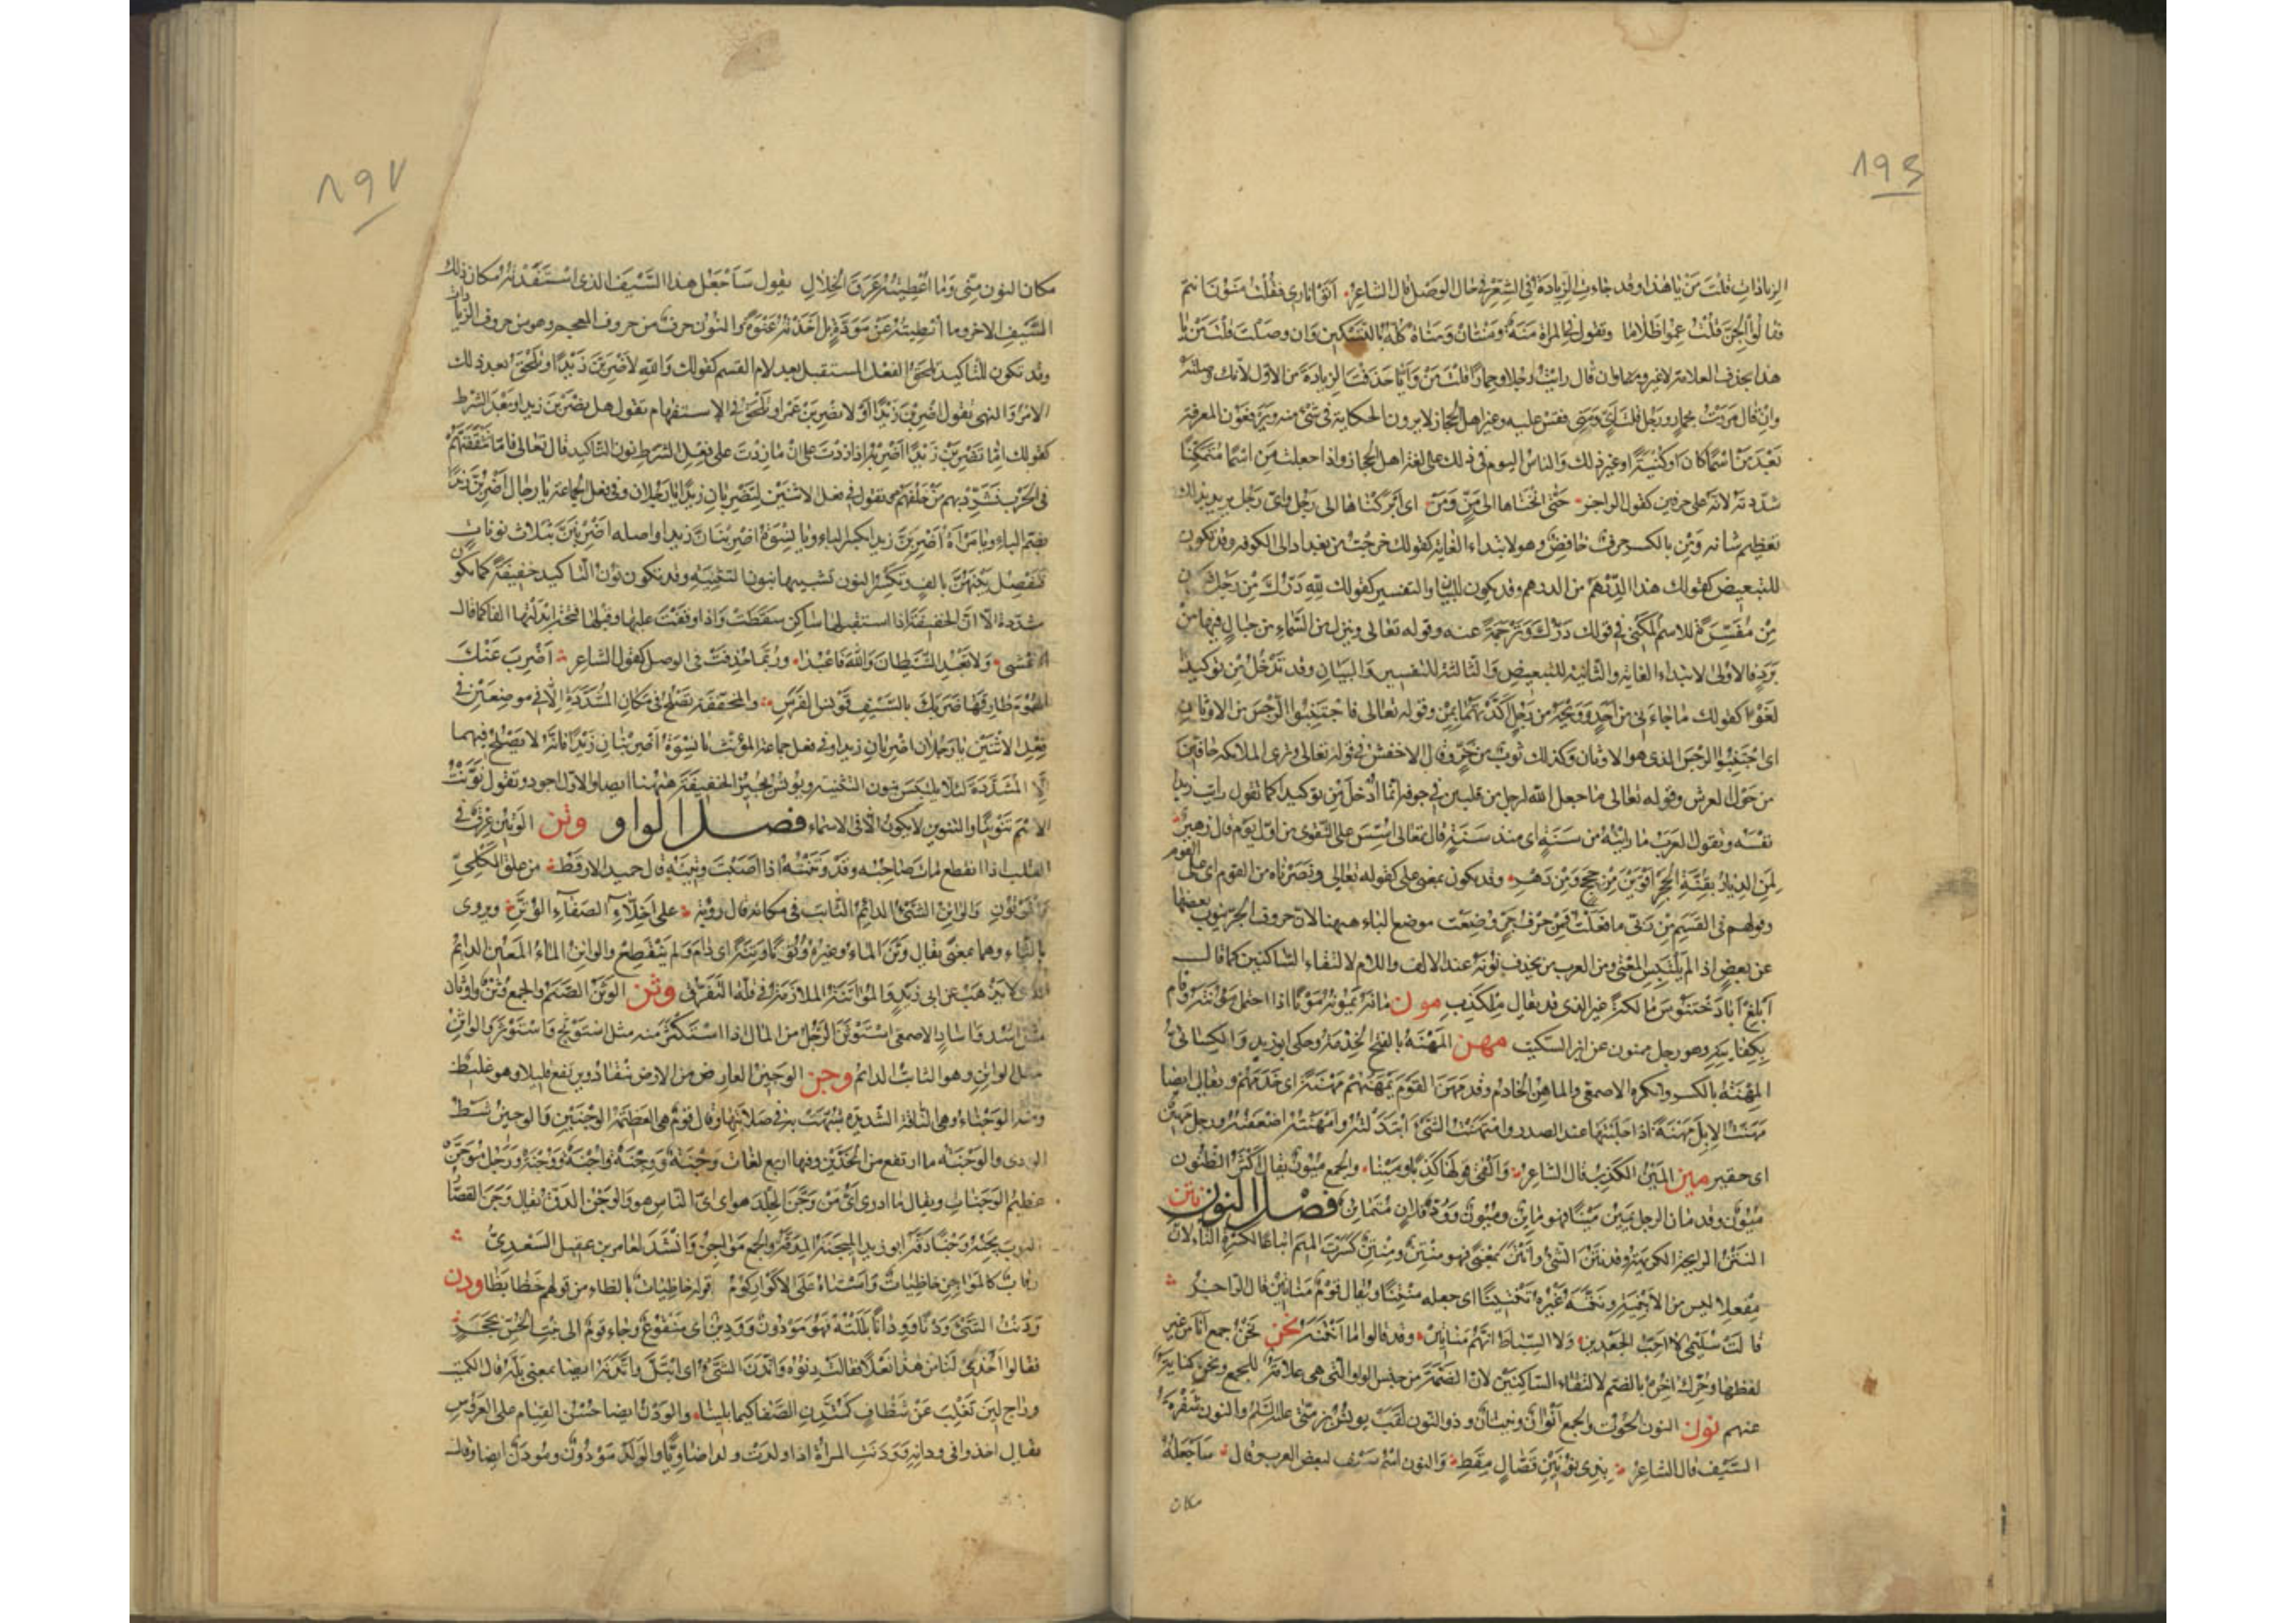 ١٩٤
الزيادات قلت من يا هذا وقد جاءت الزيادة في الشعر في حال الوصل قال الشاعر اتوا ناري فقلت منون انتم
فقالوا الجن قلت عموا ظلاما وتقول في المراة منه ومنتان ومنات كله بالتسكين وان وصلت قلت من يا
هذا بحذف العلامة وان قال رايت رجلا وحمارا قلت من وايا حذفت الزيادة من الاول لانك وصلته
وان قال مررت بحمار ورجل قلت اي ومني فقس عليه وغير اهل الحجاز لا يرون الحكاية في شئ منه ويرفعون المعرفة
بعد من اسما كان او كنية او غير ذلك والناس اليوم في ذلك على لغة اهل الحجاز واذا جعلت من اسما متمكنا
شددته لانه على حرفين كقول الراجز حتى انخناها الى من ومن اى ابركناها الى رجل واى رجل يريد بذلك
تعظيم شانه ومن بالكسر حرف خافض وهو لابتداء الغاية كقولك خرجت من بغداد الى الكوفه وقد تكون
للتبعيض كقولك هذا الدرهم من الدراهم وقد يكون للبيان والتفسير كقولك لله درك من رجل
من مفسرة للاسم المكنى في قولك درك وترجمة عنه وقوله تعالى وينزل من السماء من جبال فيها من
برد فالاولى لابتداء الغاية والثانية للتبعيض والثالثة للتفسير والبيان وقد تدخل من توكيدا
لغوا كقولك ما جاءني من احد وويحه من رجل اكدتهما بمن وقوله تعالى فاجتنبوا الرجس من الاوثان
اى اجتنبوا الرجس الذى هو الاوثان وكذلك ثوب من خز وقال الاخفش في قوله تعالى وترى الملائكة حافين
من حول العرش وقوله تعالى ما جعل الله لرجل من قلبين في جوفه انما ادخل من توكيدا كما تقول رايت زيدا
نفسه وتقول العرب ما رايته من سنة اى منذ سنة قال تعالى اسس على التقوى من اول يوم قال زهير
لمن الديار بقنة الحجر اقوين من حجج ومن دهر وقد يكون بمعنى على كقوله تعالى ونصرناه من القوم اى على القوم
وقولهم في القسم من ربى ما فعلت فمن حرف جر وضعت موضع الباء ههنا لان حروف الجر ينوب بعضها
عن بعض اذا لم يلتبس المعنى ومن العرب من يحذف نونه عند الالف واللام لالتقاء الساكنين كما قال
ابلغ ابا دختنوس مالكة غير الذى قد يقال ملكذب مون مانه يمونه مونا اذا احتمل مؤنته وقام
بكفايته وهو رجل ممون عن ابن السكيت مهن المهنة بالفتح الخدمة وحكى ابو زيد والكسائى
المهنة بالكسر وانكره الاصمعى والماهن الخادم وقد مهن القوم يمهنهم مهنة اى خدمهم ويقال ايضا
مهنت الابل مهنة اذا حلبتها عند الصدر وامتهنت الشئ ابتذلته وامهنته اضعفته ورجل مهين
اى حقير مين المين الكذب قال الشاعر والفى قولها كذبا ومينا والجمع ميون يقال اكثر الظنون
ميون وقد مان الرجل يمين مينا فهو مائن وميون وود فلان متماين فصل النون نتن
النتن الرايحة الكريهة وقد نتن الشئ وانتن بمعنى فهو منتن ومنتن كسرت الميم اتباعا لكسرة التاء لان
مفعلا ليس من الابنية ونتنه غيره تنتينا اى جعله منتنا ويقال قوم مناتين قال الراجز
قالت سليمى لا احب الجعدين ولا السباط انهم مناتين وقد قالوا ما انتنه نحن نحن جمع انا من غير
لفظها وحرك اخره بالضم لالتقاء الساكنين لان الضمة من جنس الواو التى هى علامة للجمع ونحن كناية
عنهم نون النون الحوت والجمع انوان ونينان وذو النون لقب يونس بن متى عليه السلم والنون شفرة
السيف قال الشاعر بذى نونين فصال مقط والنون اسم سيف لبعض العرب وقال ساجعله
مكان
١٩٧
مكان النون منى وما اعطيته عرق الخلال يقول ساجعل هذا السيف الذى استفدته مكان ذلك
السيف الاخر وما اعطيته عن مودة بل اخذته عنوة والنون حرف من حروف المعجم وهو من حروف الزيادات
وقد تكون للتاكيد تلحق الفعل المستقبل بعد لام القسم كقولك والله لاضربن زيدا وتلحق بعد ذلك
الامر والنهى تقول اضربن زيدا ولا تضربن عمرا وتلحق في الاستفهام تقول هل تضربن زيدا وبعد الشرط
كقولك اما تضربن زيدا اضربه اذا زدت على ان ما زدت على فعل الشرط نون التاكيد قال تعالى فاما تثقفنهم
في الحرب فشرد بهم من خلفهم تقول في فعل الاثنين لتضربان زيدا يا رجلان وفى فعل الجماعة يا رجال اضربن زيدا
بضم الباء ويا مراة اضربن زيدا بكسر الباء ويا نسوة اضربنان زيدا واصله اضربنن بثلاث نونات
فتفصل بينهن بالف وتكسر النون تشبيها بنون التثنية وقد تكون نون التاكيد خفيفة كما تكون
مشددة الا ان الخفيفة اذا استقبلها ساكن سقطت واذا وقفت عليها وقبلها فتحة ابدلتها الفا كما قال
الاعشى ولا تعبد الشيطان والله فاعبدا وربما حذفت في الوصل كقول الشاعر اضرب عنك
الهموم طارقها ضربك بالسيف قونس الفرس والمخففة تصلح في مكان المشددة الا في موضعين في
فعل الاثنين يا رجلان اضربان زيدا وفى فعل جماعة المؤنث يا نسوة اضربنان زيدا فانه لا يصلح فيهما
الا المشددة لئلا يلتبس بنون التثنية ويونس يجيز الخفيفة ههنا ايضا والاول اجود وتقول نونت
الاسم تنوينا والتنوين لا يكون الا في الاسماء فصل الواو وتن الوتين عرق في
القلب اذا انقطع مات صاحبه وقد وتنته اذا اصبت وتينه قال حميد الارقط من علق الكلى
والموتون والواتن الشئ الدائم الثابت في مكانه قال روبة على اخلاء الصفاء الوتن ويروى
بالثاء وهما بمعنى يقال وتن الماء وغيره وتونا وتنة اى دام ولم ينقطع والواتن الماء المعين الدائم
الذى لا يذهب عن ابى زيد والمواتنة الملازمة في قلة التفرق وثن الوثن الصنم والجمع وثن واوثان
مثل اسد واساد الاصمعى استوثن الرجل من المال اذا استكثر منه مثل استوثج واستوثر والواثن
مثل الواتن وهو الثابت الدائم وجن الوجين العارض من الارض ينقاد ويرتفع قليلا وهو غليظ
ومنه الوجناء وهى الناقة الشديدة شبهت به في صلابتها وقال قوم هى العظيمة الوجنتين والوجين شط
الوادى والوجنة ما ارتفع من الخدين وفيها اربع لغات وجنة ووجنة واجنة ووجنة ورجل موجن
عظيم الوجنات ويقال ما ادرى اى من وجن الجلد هو اى اى الناس هو والوجن الدق يقال وجن القصار
الثوب يجنه وجنا دقه ابو زيد الميجنة المدقة والجمع مواجن وانشد لعامر بن عقيل السعدى
رقاب كالمواجن خاظيات واستاه على الاكوار كوم قوله خاظيات بالظاء من قولهم خظا بظا ودن
ودنت الشئ ودنا وودانا بللته فهو مودون وودين اى منقوع وجاء قوم الى بنت الخس بحجر
فقالوا احذى لنا من هذا نعلا فقالت دنوه واتدن الشئ اى ابتل واتدنه ايضا بمعنى بله قال الكميت
وراج لين تغلب عن شظاف كمتدن الصفا كيما يلينا والودن ايضا حسن القيام على العروس
يقال اخذوا في ودانه وودنت المراة اذا ولدت ولدا ضاويا والولد مودون ومودن ايضا وقال